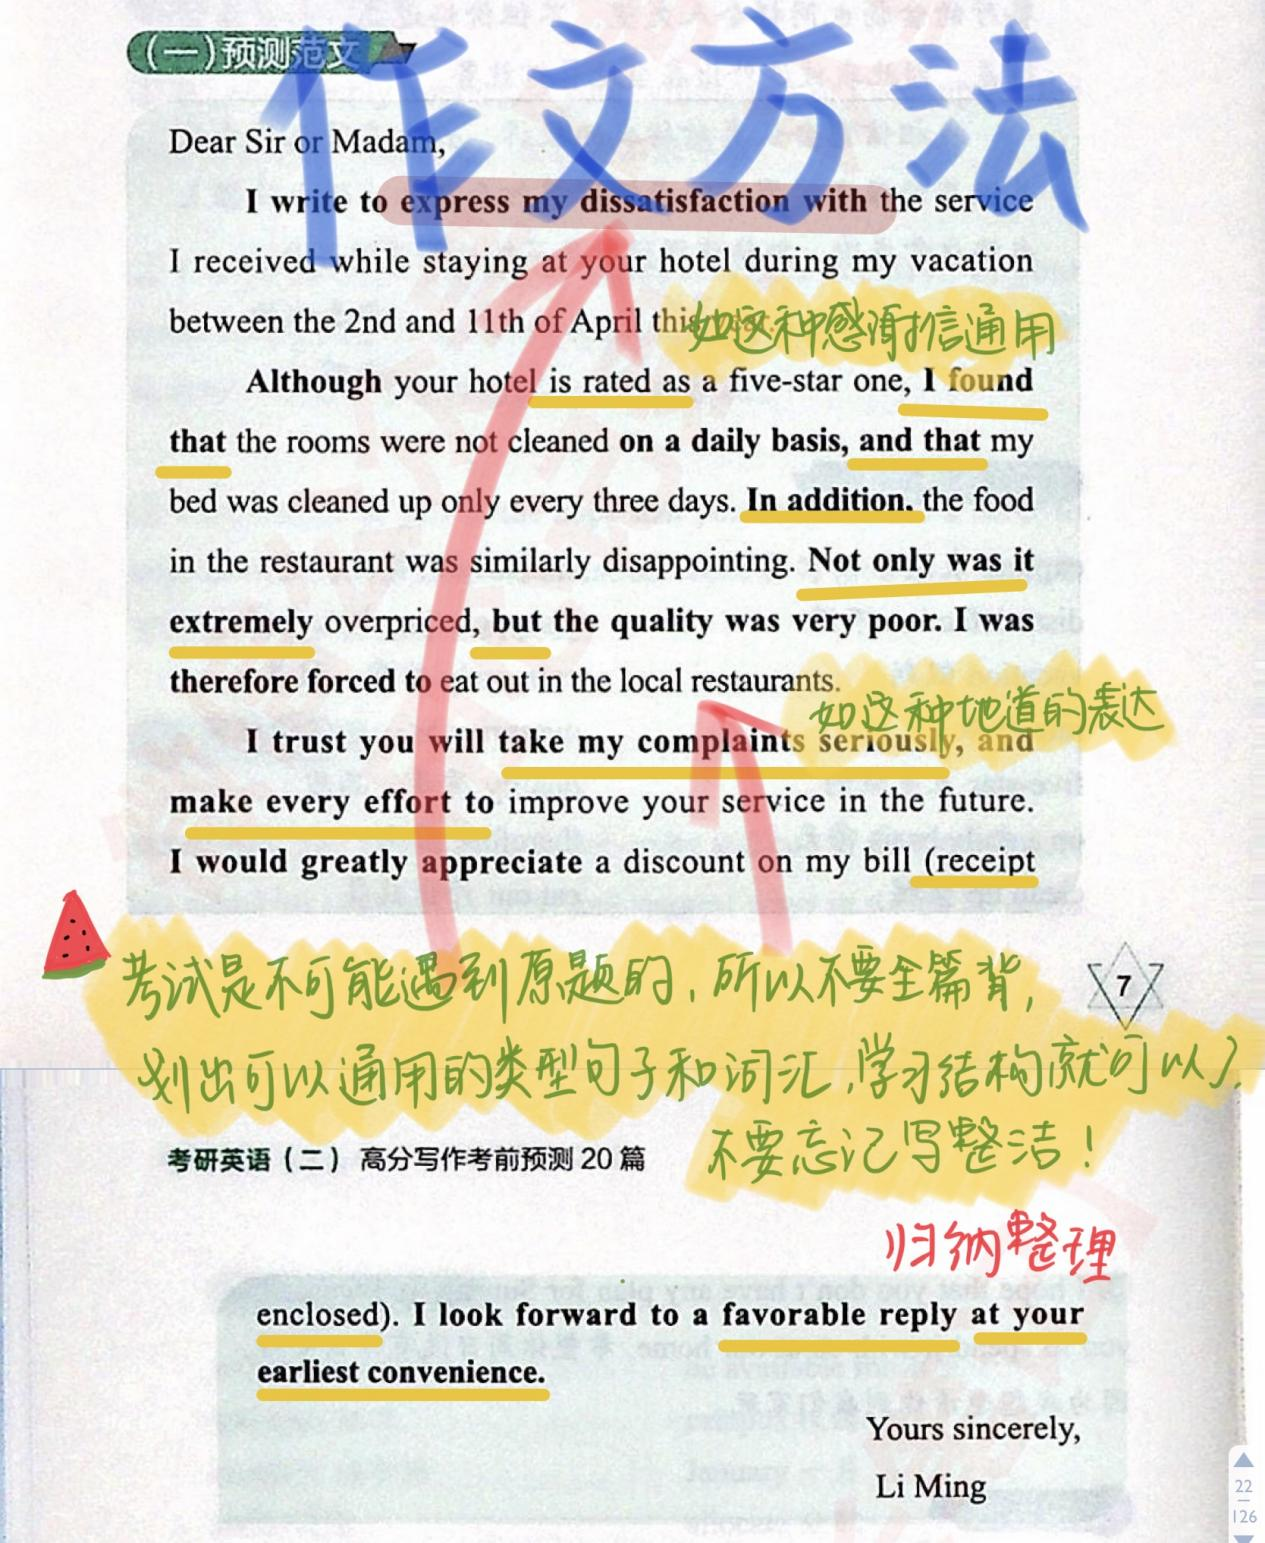 (一)预测范文
作文方法
Dear Sir or Madam,
I write to express my dissatisfaction with the service
I received while staying at your hotel during my vacation
between the 2nd and 11th of April this
如这种感谢信通用
Although your hotel is rated as a five-star one, I found
that the rooms were not cleaned on a daily basis, and that my
bed was cleaned up only every three days. In addition, the food
in the restaurant was similarly disappointing. Not only was it
extremely overpriced, but the quality was very poor. I was
therefore forced to eat out in the local restaurants.
如这种地道的表达
I trust you will take my complaints seriously, and
make every effort to improve your service in the future.
I would greatly appreciate a discount on my bill (receipt
考试是不可能遇到原题的,所以不要全篇背,
7
划出可以通用的类型句子和词汇,学习结构就可以了.
不要忘记写整洁!
考研英语(二)高分写作考前预测20篇
归纳整理
enclosed). I look forward to a favorable reply at your
earliest convenience.
Yours sincerely,
Li Ming
22
126